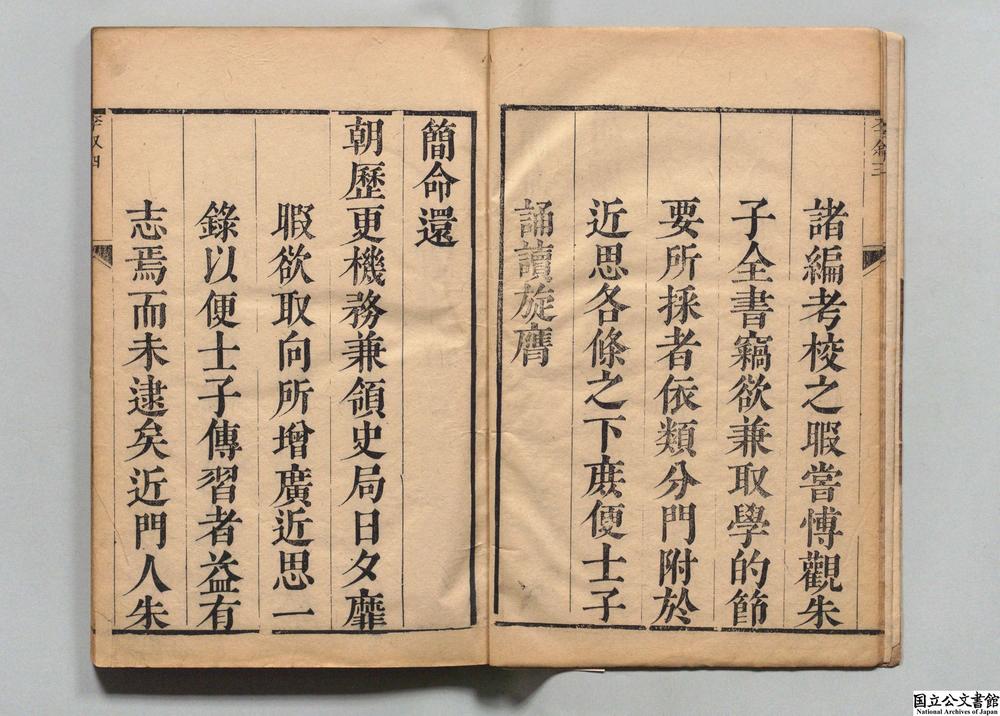 諸編考校之暇嘗愽觀朱
子全書竊欲兼取學的節
要所採者依類分門附於
近思各條之下庶便士子
誦讀旋膺
簡命還
朝歷更機務兼領史局日夕靡
暇欲取向所增廣近思一
錄以便士子傳習者益有
志焉而未逮矣近門人朱
国立公文書館
National Archives of Japan